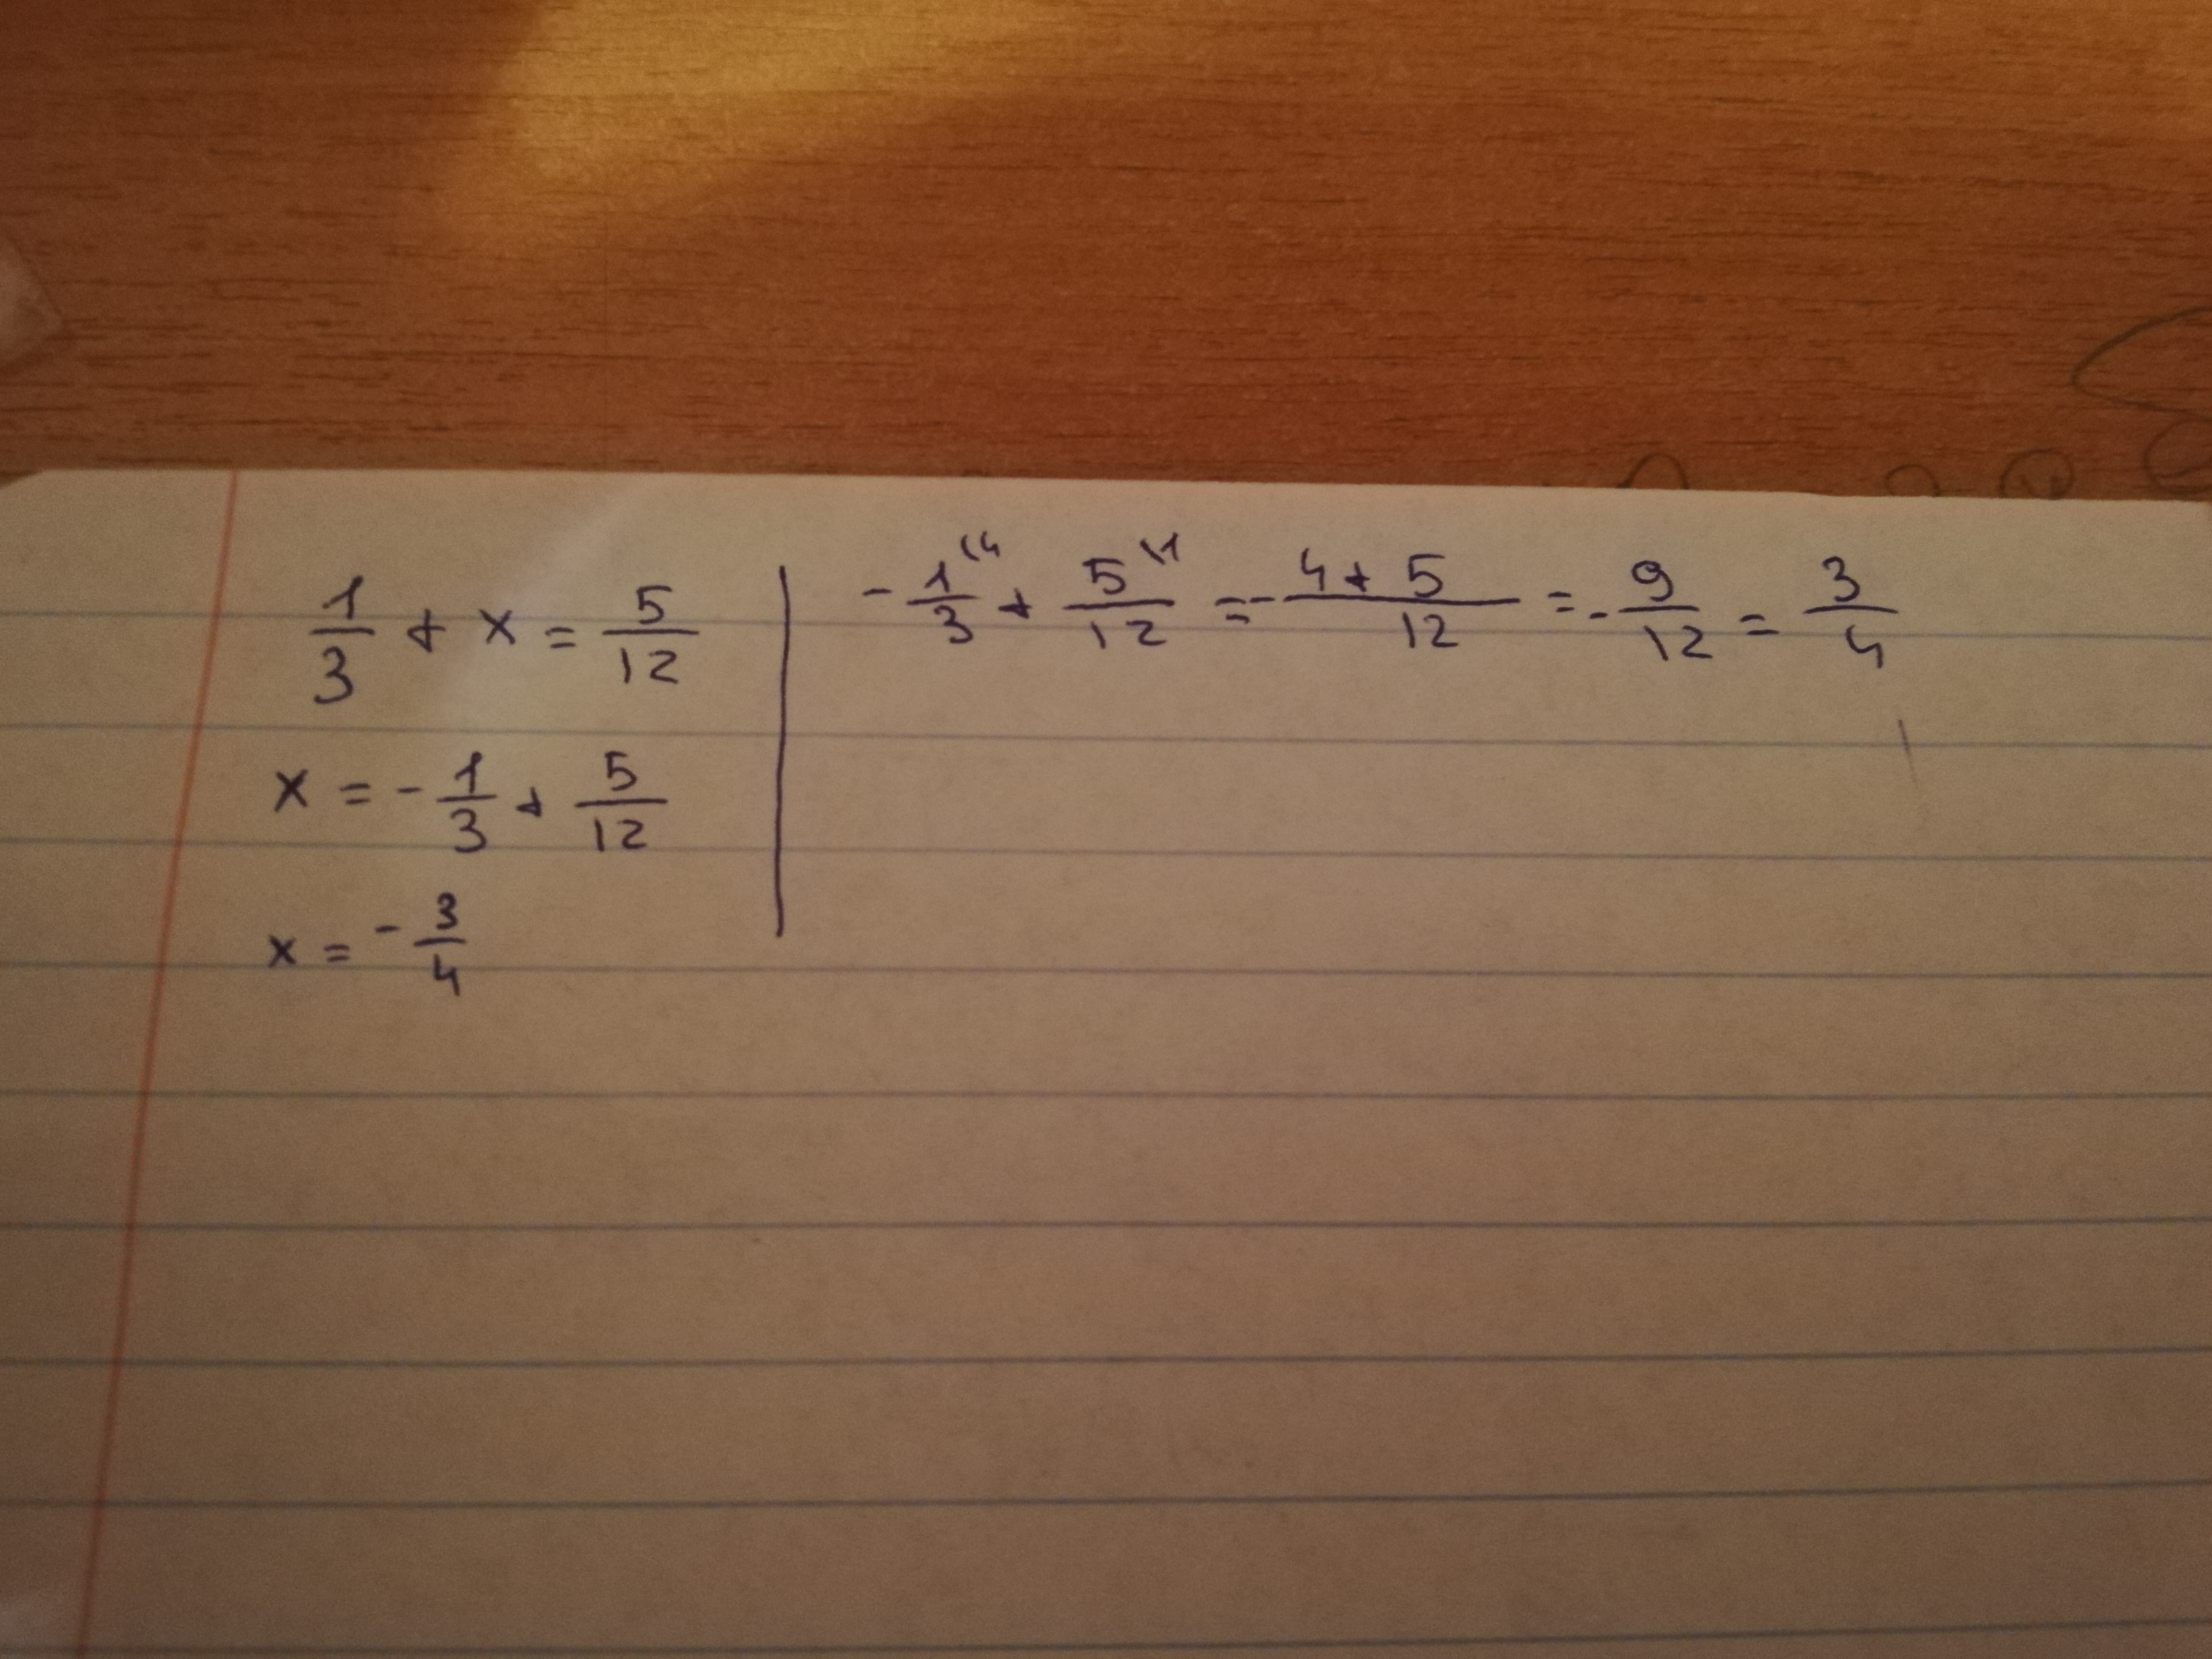 1/3 + x = 5/12
x = - 1/3 + 5/12
x = - 3/4
- 1(4/3 + 5\1/12 = - 4 + 5/12 = - 9/12 = 3/4